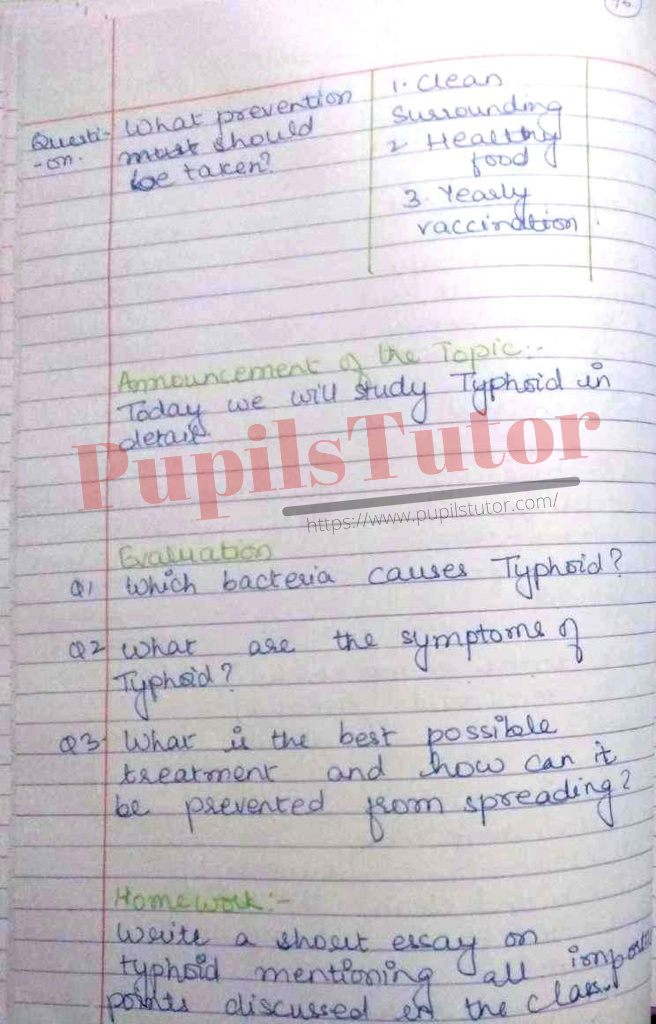 Questi-
-on.
What prevention
must should
be taken?
1. Clean
Surrounding
2. Healthy
food
3. Yearly
vaccination
Announcement of the Topic:-
Today we will study Typhoid in
detail.
PupilsTutor
https://www.pupilstutor.com/
Evaluation
Q1 Which bacteria causes Typhoid?
Q2 What are the symptoms of
Typhoid?
Q3 What is the best possible
treatment and how can it
be prevented from spreading?
Homework:-
Write a short essay on
typhoid mentioning all
points discussed in the class.